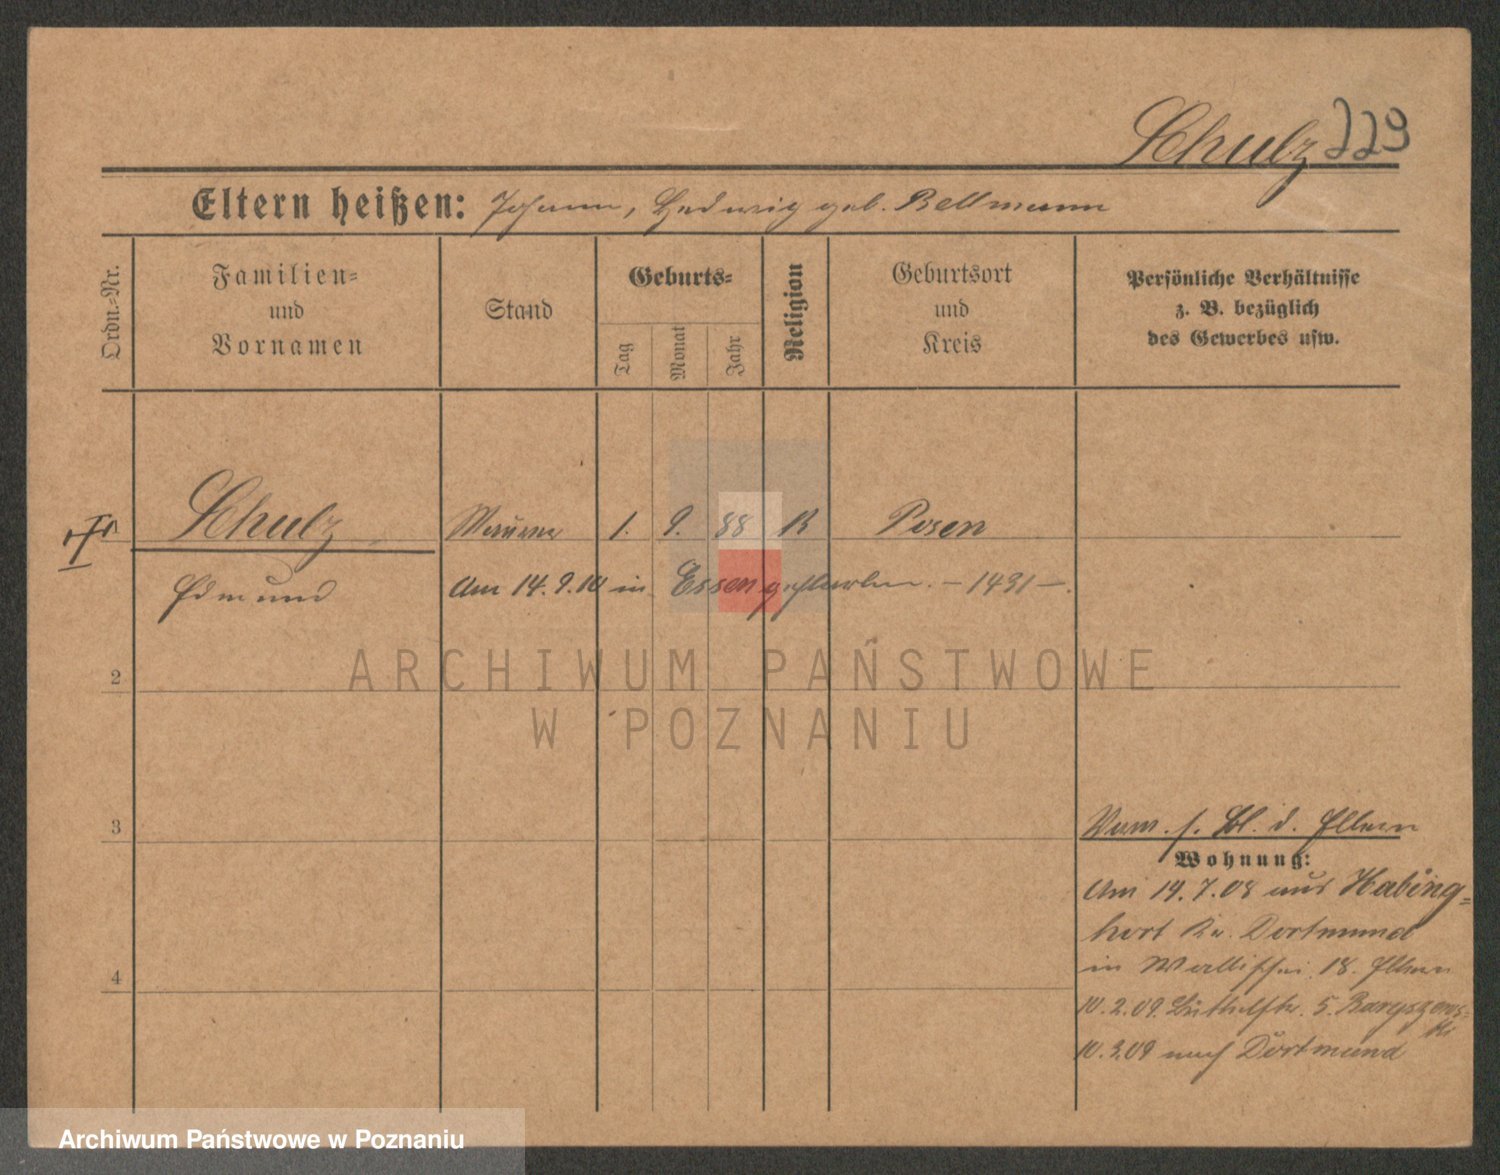 Schulz 229
Eltern heißen: Johann, Hedwig geb. Bellmann
Ordn.-Nr.
Familien-
und
Vornamen
Stand
Geburts-
Tag
Monat
Jahr
Religion
Geburtsort
und
Kreis
Persönliche Verhältnisse
z. B. bezüglich
des Gewerbes usw.
Schulz Maurer 1. 9. 88 Posen
Edmund Am 14.9.10 in Essen gestorben. – 1431 –.
ARCHIWUM PAŃSTWOWE
W POZNANIU
2
3
4
Verm. s. Bl. d. Eltern
Wohnung:
Am 14.7.08 aus Habing-
horst Kr. Dortmund
in Wallischei 18. Eltern
10.2.09. 5.
10.3.09 nach Dortmund
Archiwum Państwowe w Poznaniu